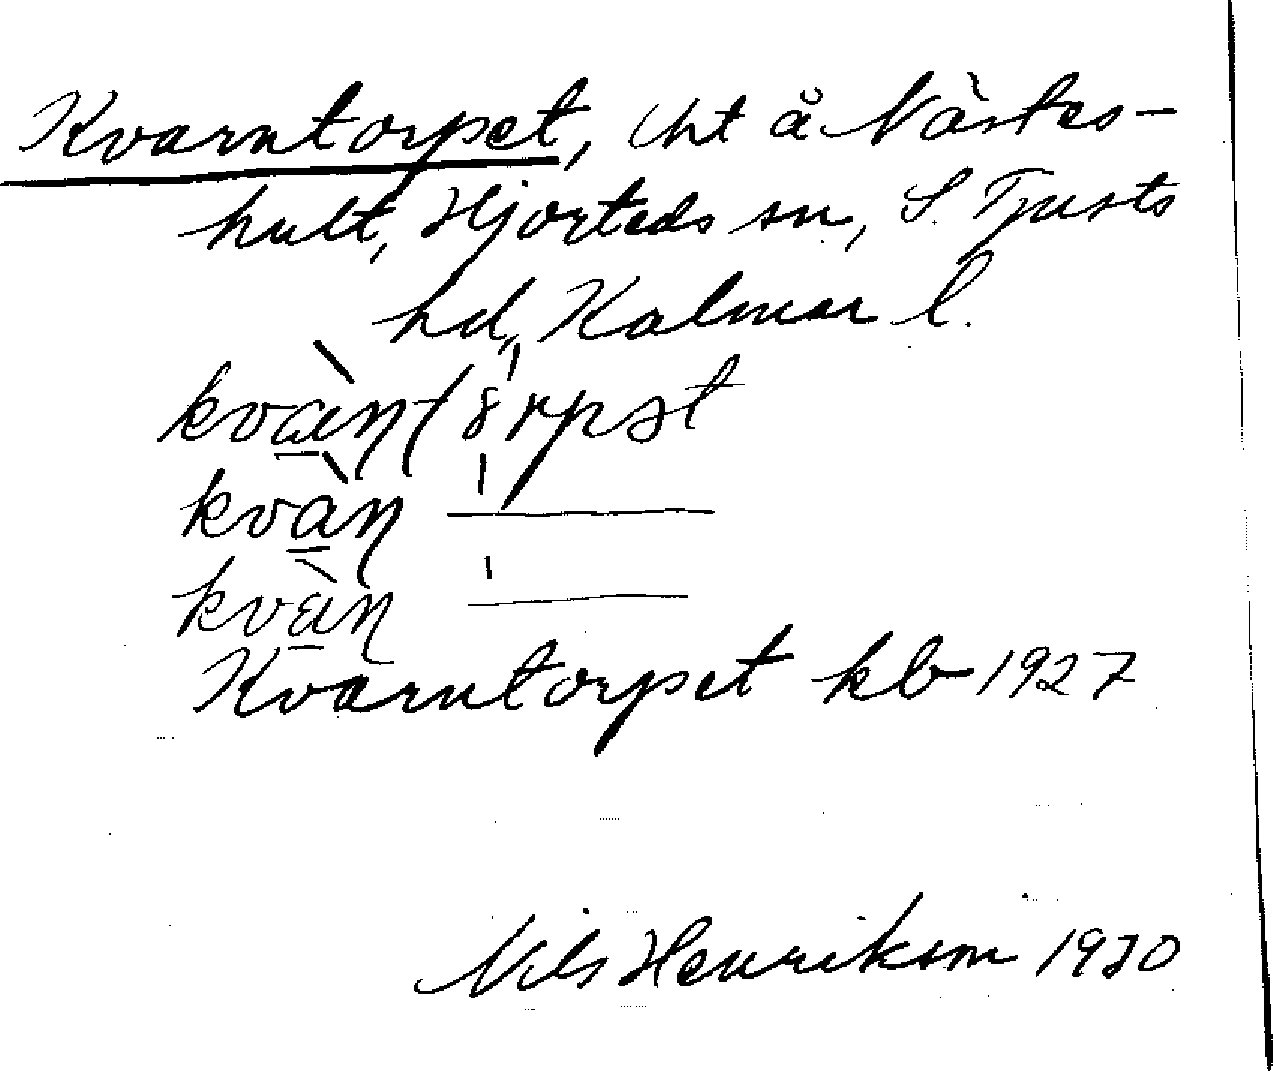 Kvarntorpet, lht å Nästes-
hult, Hjorteds sn, S. Tjusts
hd, Kalmar l.
kvan
kvan
kvan
Kvarntorpet kb 1927
Nils Henrikson 1930